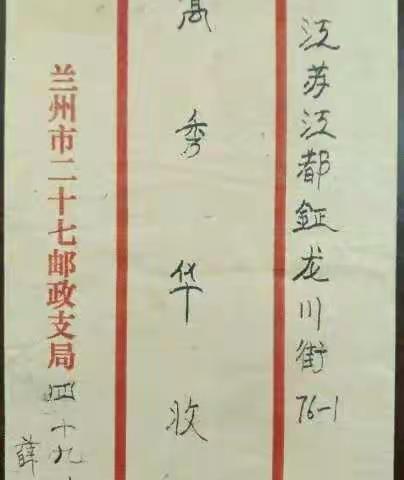 江苏江都鉦龙川街76-1
高秀华收
兰州市二十七邮政支局
四十九
薛